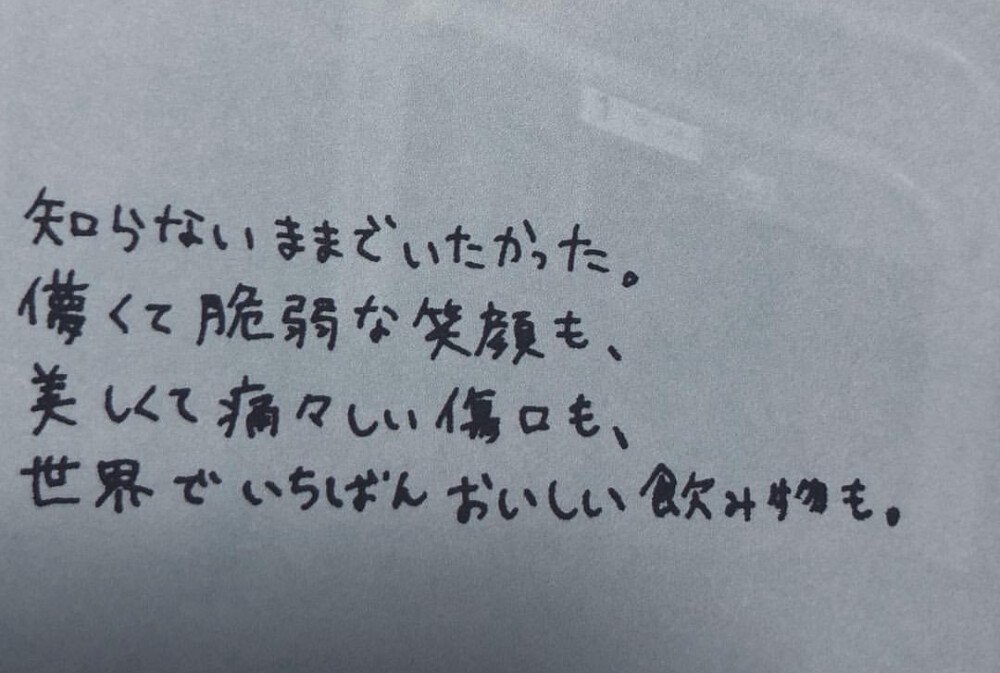 知らないままでいたかった。
儚くて脆弱な笑顔も、
美しくて痛々しい傷口も、
世界でいちばんおいしい飲み物も。